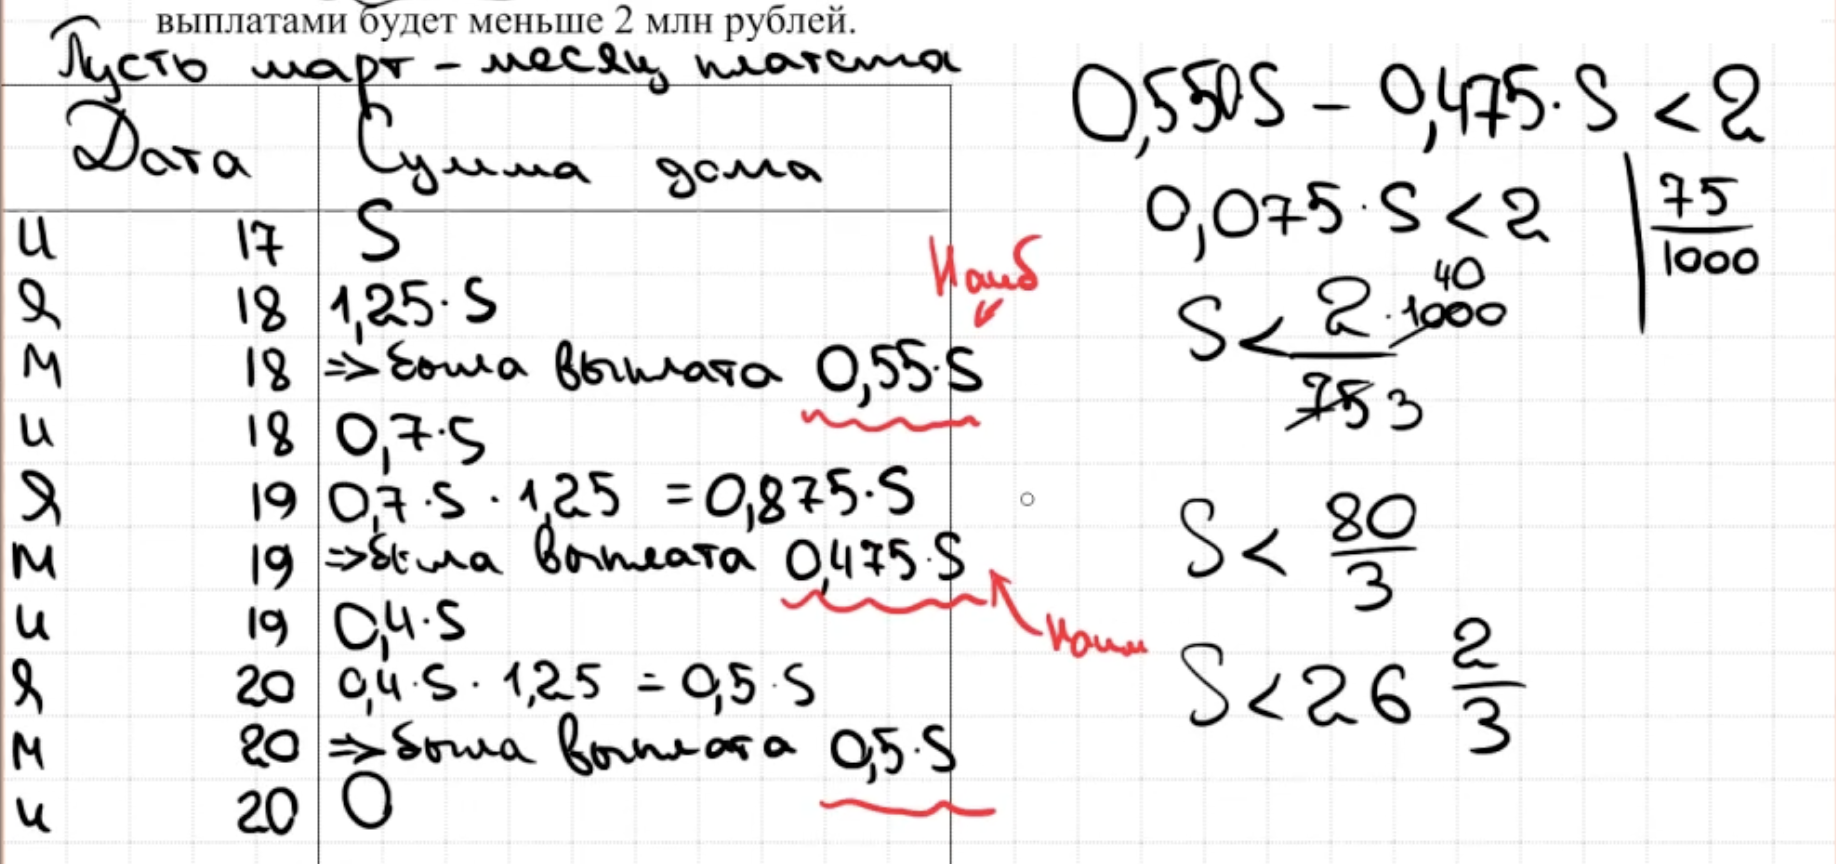 выплатами будет меньше 2 млн рублей.
Пусть март - месяц платежа
Дата Сумма долга
И 17 S
Я 18 1,25·S
М 18 => была выплата 0,55·S
И 18 0,7·S
Я 19 0,7·S · 1,25 = 0,875·S
М 19 => была выплата 0,475·S
И 19 0,4·S
Я 20 0,4·S · 1,25 = 0,5·S
М 20 => была выплата 0,5·S
И 20 0
Наиб
Наим
0,550S - 0,475·S < 2
0,075·S < 2 | 75/1000
S < 2·1000/75 40 3
S < 80/3
S < 26 2/3